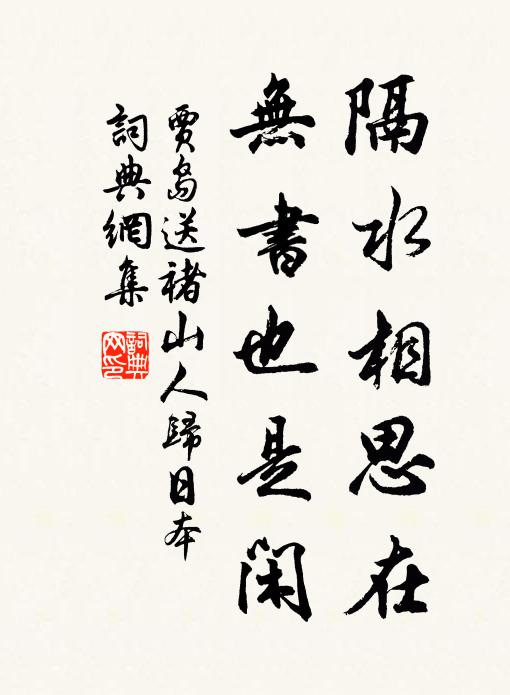 隔水相思在
無書也是闲
賈島送褚山人歸日本
詞典網集
詞典
网印